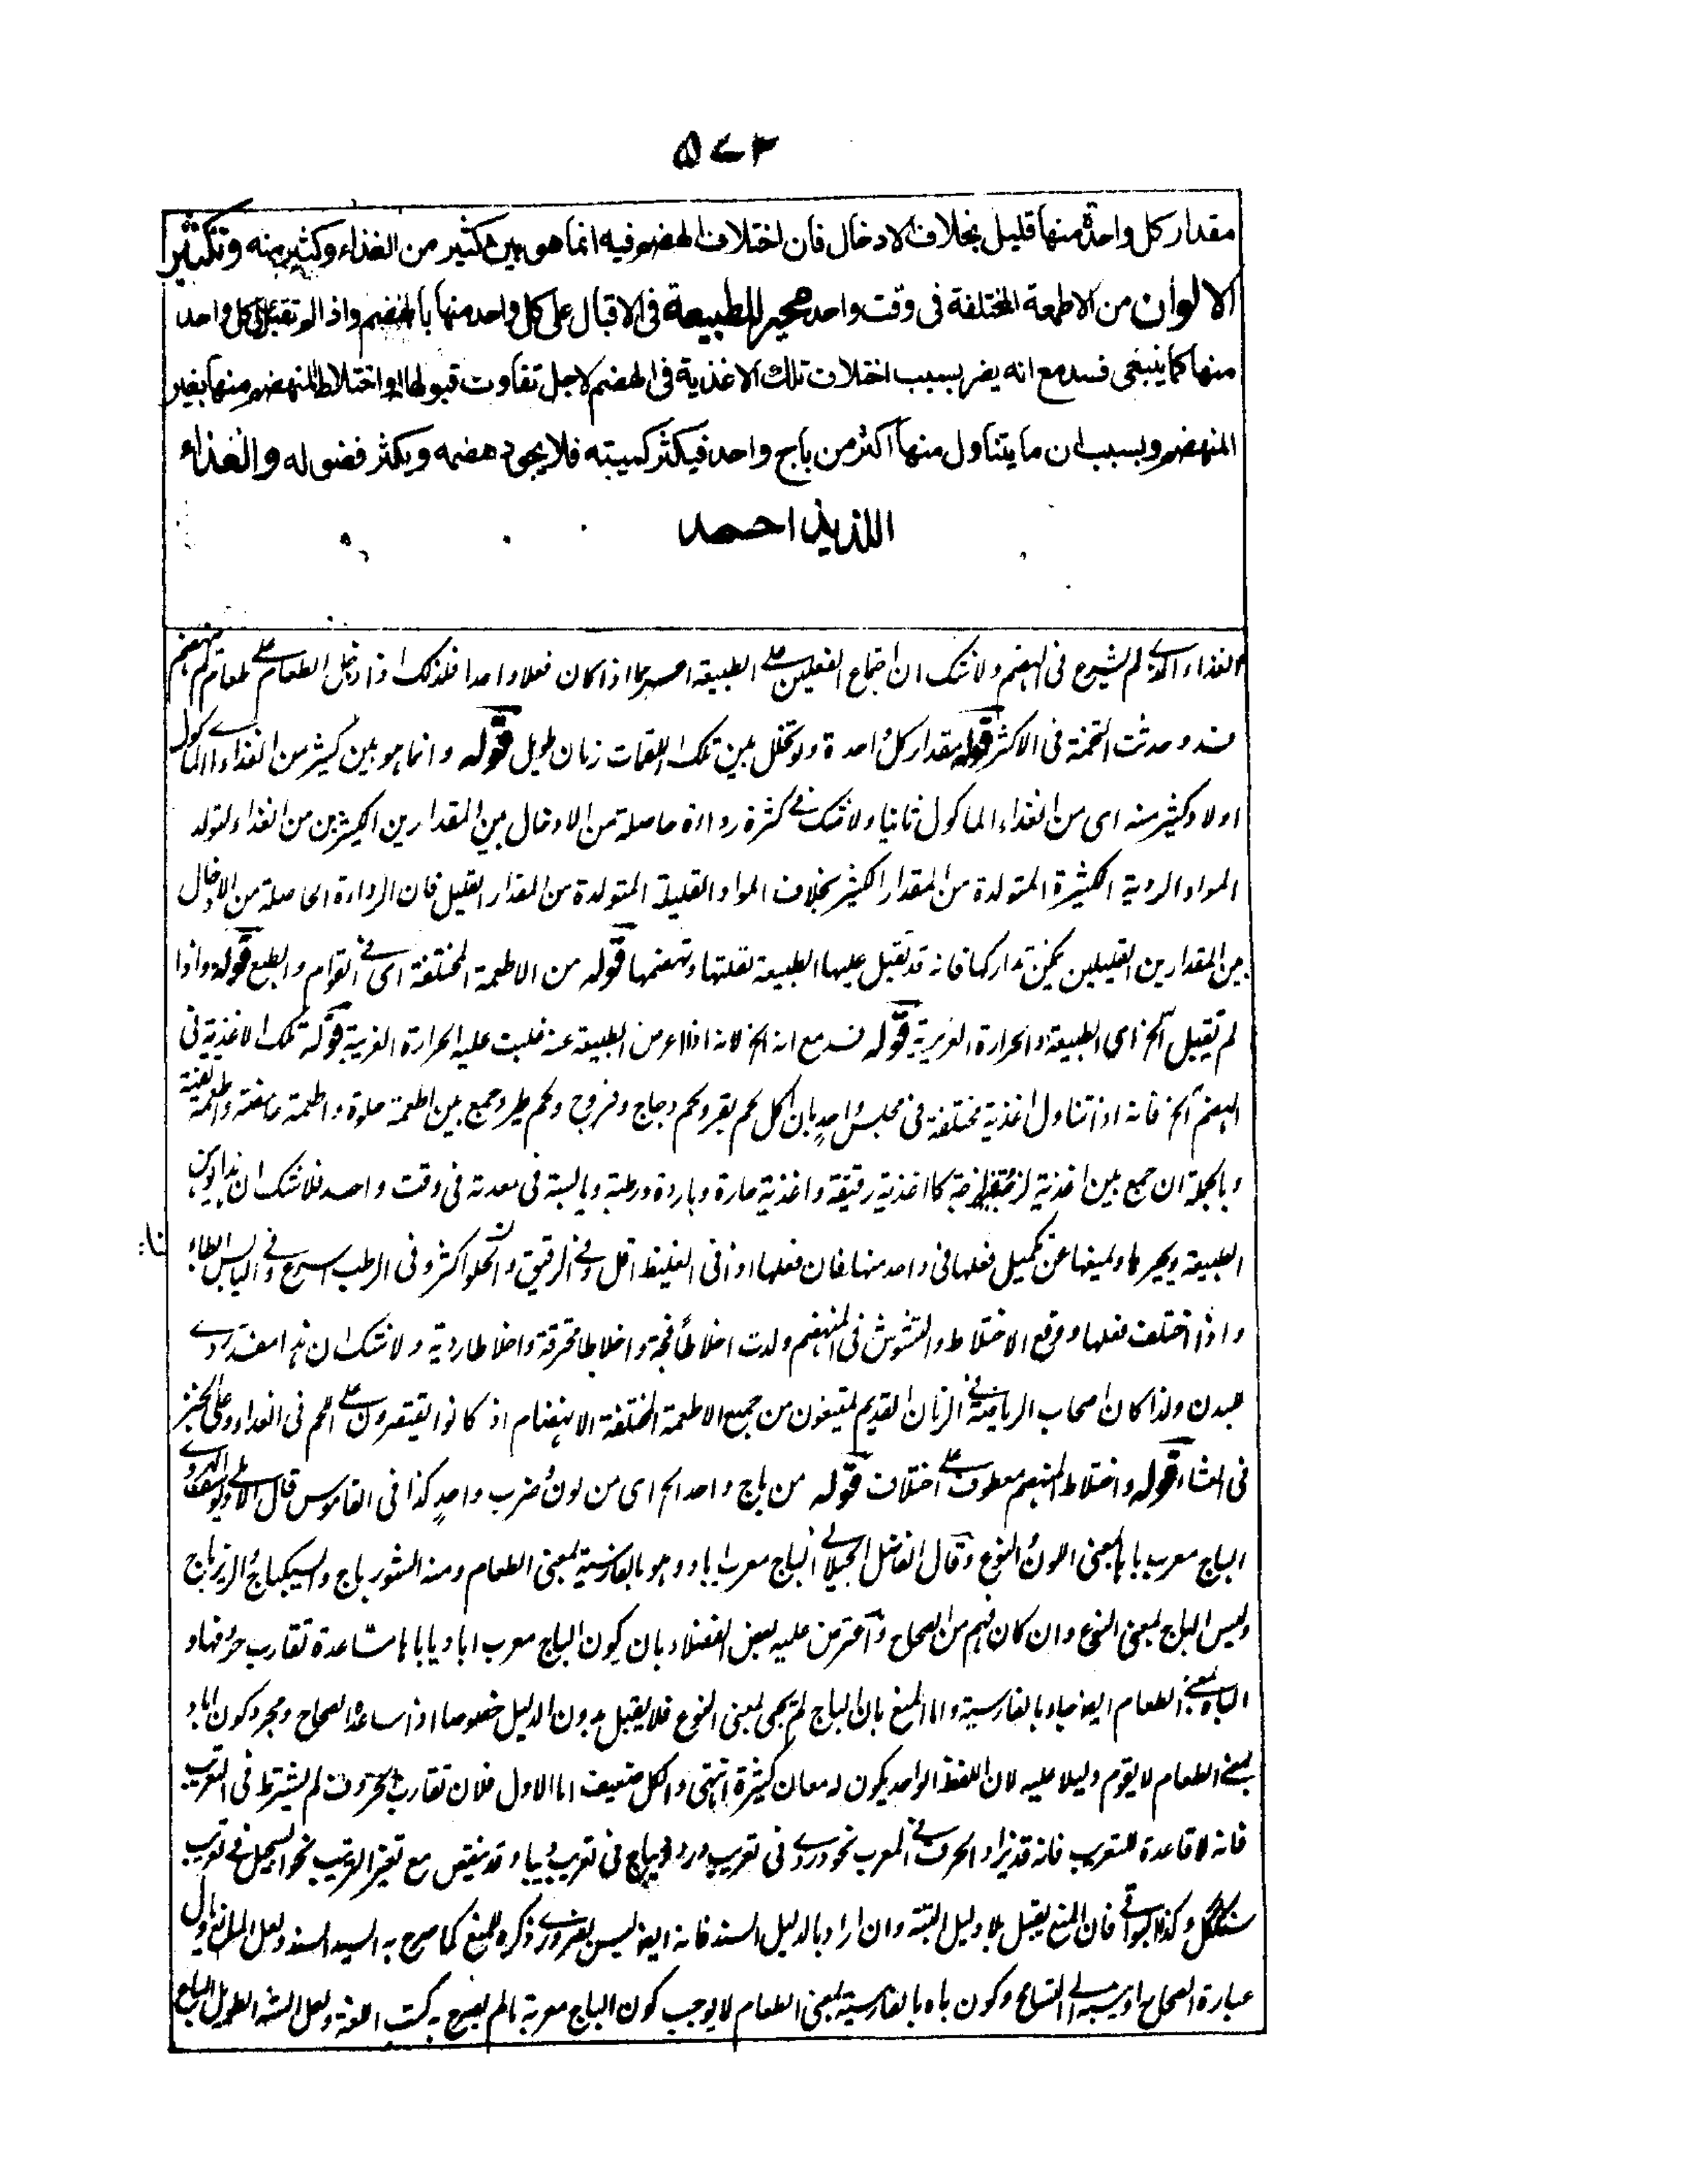 ۵۷۳
مقدار كل واحدة منها قليل بخلاف الادخال فان اختلاف الهضم فيه انما هو بين كثير من الغذاء وكثير منه وتكثير
الالوان من الاطعمة المختلفة فى وقت واحد محير للطبيعة فى الاقبال على كل واحد منها بالهضم واذا لم تقبل على كل واحد
منها كما ينبغى فسد مع انه يضر بسبب اختلاف تلك الاغذية فى الهضم لاجل تفاوت قبولها له واختلاط المنهضم منها بغير
المنهضم وبسبب ان ما يتناول منها اكثر من باج واحد فيكثر كميته فلا يجود هضمه ويكثر فضوله والغذاء
اللذيذ احمد
الغذاء الذي لم يشرع فى الهضم ولا شك ان اجتماع الفعلين على الطبيعة اعسر مما اذا كان فعلا واحدا فلذلك اذا ادخل الطعام على طعام لم ينهضم
فسد وحدثت التخمة فى الاكثر قوله مقدار كل واحدة ولو تخلل بين تلك اللقمات زمان طويل قوله وانما هو بين كثير من الغذاء الماكول
اولا وكثير منه اى من الغذاء الماكول ثانيا ولا شك فى كثرة رداءة حاصلة من الادخال بين المقدارين الكثيرين من الغذاء لتولد
المواد الردية الكثيرة المتولدة من المقدار الكثير بخلاف المواد القليلة المتولدة من المقدار القليل فان الرداءة الحاصلة من الادخال
بين المقدارين القليلين يمكن تداركها فانه قد تقبل عليها الطبيعة لقلتها وتهضمها قوله من الاطعمة المختلفة اى فى القوام والطبع قوله واذا
لم تقبل الخ اى الطبيعة والحرارة الغريزية قوله فسد مع انه الخ لانه اذا اعرض الطبيعة عنه غلبت عليه الحرارة الغريبة قوله تلك الاغذية فى
الهضم الخ فانه اذا تناول اغذية مختلفة فى مجلس واحد بان اكل لحم بقر ولحم دجاج وفروج ولحم طير وجمع بين اطعمة حلوة واطعمة حامضة واطعمة
وبالجملة ان جمع بين اغذية كاغذية رقيقة واغذية حارة وباردة ورطبة ويابسة فى معدته فى وقت واحد فلا شك ان هذا يوهن
الطبيعة ويحيرها ويمنعها عن تكميل فعلها فى واحد منها فان فعلها اذن فى الغليظ اقل وفى الرقيق والحلو اكثر وفى الرطب اسرع وفى اليابس ابطاء
واذا اختلف فعلها ووقع الاختلاط والتشوش فى المنهضم ولدت اخلاطا فجة واخلاطا محترقة واخلاطا ردية ولا شك ان هذا مفسد ردي
للبدن ولذا كان اصحاب الرياضة فى الزمان القديم يمتنعون من جميع الاطعمة المختلفة الانهضام اذ كانوا يقتصرون على اللحم فى الغداء وعلى الخبز
فى العشاء قوله واختلاط المنهضم معطوف على اختلاف قوله من باج واحد الخ اى من لون وضرب واحد كذا فى القاموس قال
الباج معرب باها بمعنى اللون والنوع وقال الفاضل الجيلانى الباج معرب اباو وهو بالفارسية بمعنى الطعام ومنه الشورباج والسكباج والزيرباج
وليس الباج بمعنى النوع وان كان فهم من الصحاح واعترض عليه بعض الفضلاء بان كون الباج معرب اباو يا باها مساعدة تقارب حروفها و
الباه بمعنى الطعام ايضا جاء بالفارسية واما المنع بان الباج لم يجئ بمعنى النوع فلا يقبل بدون الدليل خصوصا اذا ساعده الصحاح ومجرد كون اباو
بمعنى الطعام لا يقوم دليلا عليه لان اللفظ الواحد يكون له معان كثيرة انتهى والكل ضعيف اما الاول فلان تقارب الحروف لم يشترط فى التعريب
فانه لا قاعدة للتعريب فانه قد يزاد الحرف فى المعرب نحو وردى فى تعريب ورد وديباج فى تعريب ديبا وقد ينقص مع تغير الترتيب نحو السجيل فى تعريب
سنگ گل وكذا البواقى فان المنع يقبل بلا دليل البتة وان اراد بالدليل السند فانه ايضا ليس بضرورى ذكره للمنع كما صرح به السيد السند ولعل المانع يأول
عبارة الصحاح او ينسبه الى التسامح وكون باه بالفارسية بمعنى الطعام لا يوجب كون الباج معربه ما لم يصرح به كتب اللغة ولعل